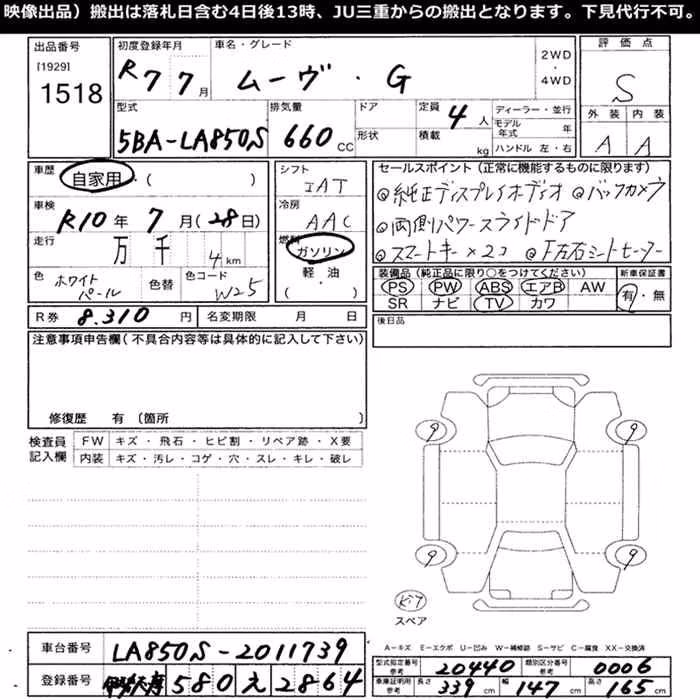 映像出品）搬出は落札日含む4日後13時、JU三重からの搬出となります。下見代行不可。
出品番号
[1929]
1518
初度登録年月
R7 7月
車名・グレード
ムーヴ・G
2WD
・
4WD
評価点
S
外装 内装
A A
型式
5BA-LA850S
排気量
660 CC
ドア
形状
定員 4人
積載 kg
ディーラー・並行
モデル年式 年
ハンドル 左・右
車歴
自家用・( )
車検
R10年 7月(28日)
走行
万 千 4km
色
ホワイトパール
色替
色コード
W25
シフト
IAT
冷房
AAC
燃料
ガソリン
軽・油
( )
セールスポイント（正常に機能するものに限ります）
◎純正ディスプレイオーディオ ◎バックカメラ
◎両側パワースライドドア
◎スマートキー×2コ ◎F左右シートヒーター
装備品（純正品に限り○をつけてください）
PS PW ABS エアB AW
SR ナビ TV カワ
新車保証書
有・無
R券 8.310円
名変期限 月 日
後日品
注意事項申告欄（不具合内容等は具体的に記入して下さい）
修復歴 有（箇所 ）
検査員記入欄
FW キズ・飛石・ヒビ割・リペア跡・X要
内装 キズ・汚レ・コゲ・穴・スレ・キレ・破レ
9 9
9 9
キット
スペア
A－キズ E－エクボ U－凹み W－補修跡 S－サビ C－腐食 XX－交換済
車台番号 LA850S-2011739
登録番号 580 え 2864
型式指定番号 参考 20440
類別区分番号 参考 0006
車庫証明用 参考 長さ 339cm 幅 147cm 高さ 165cm